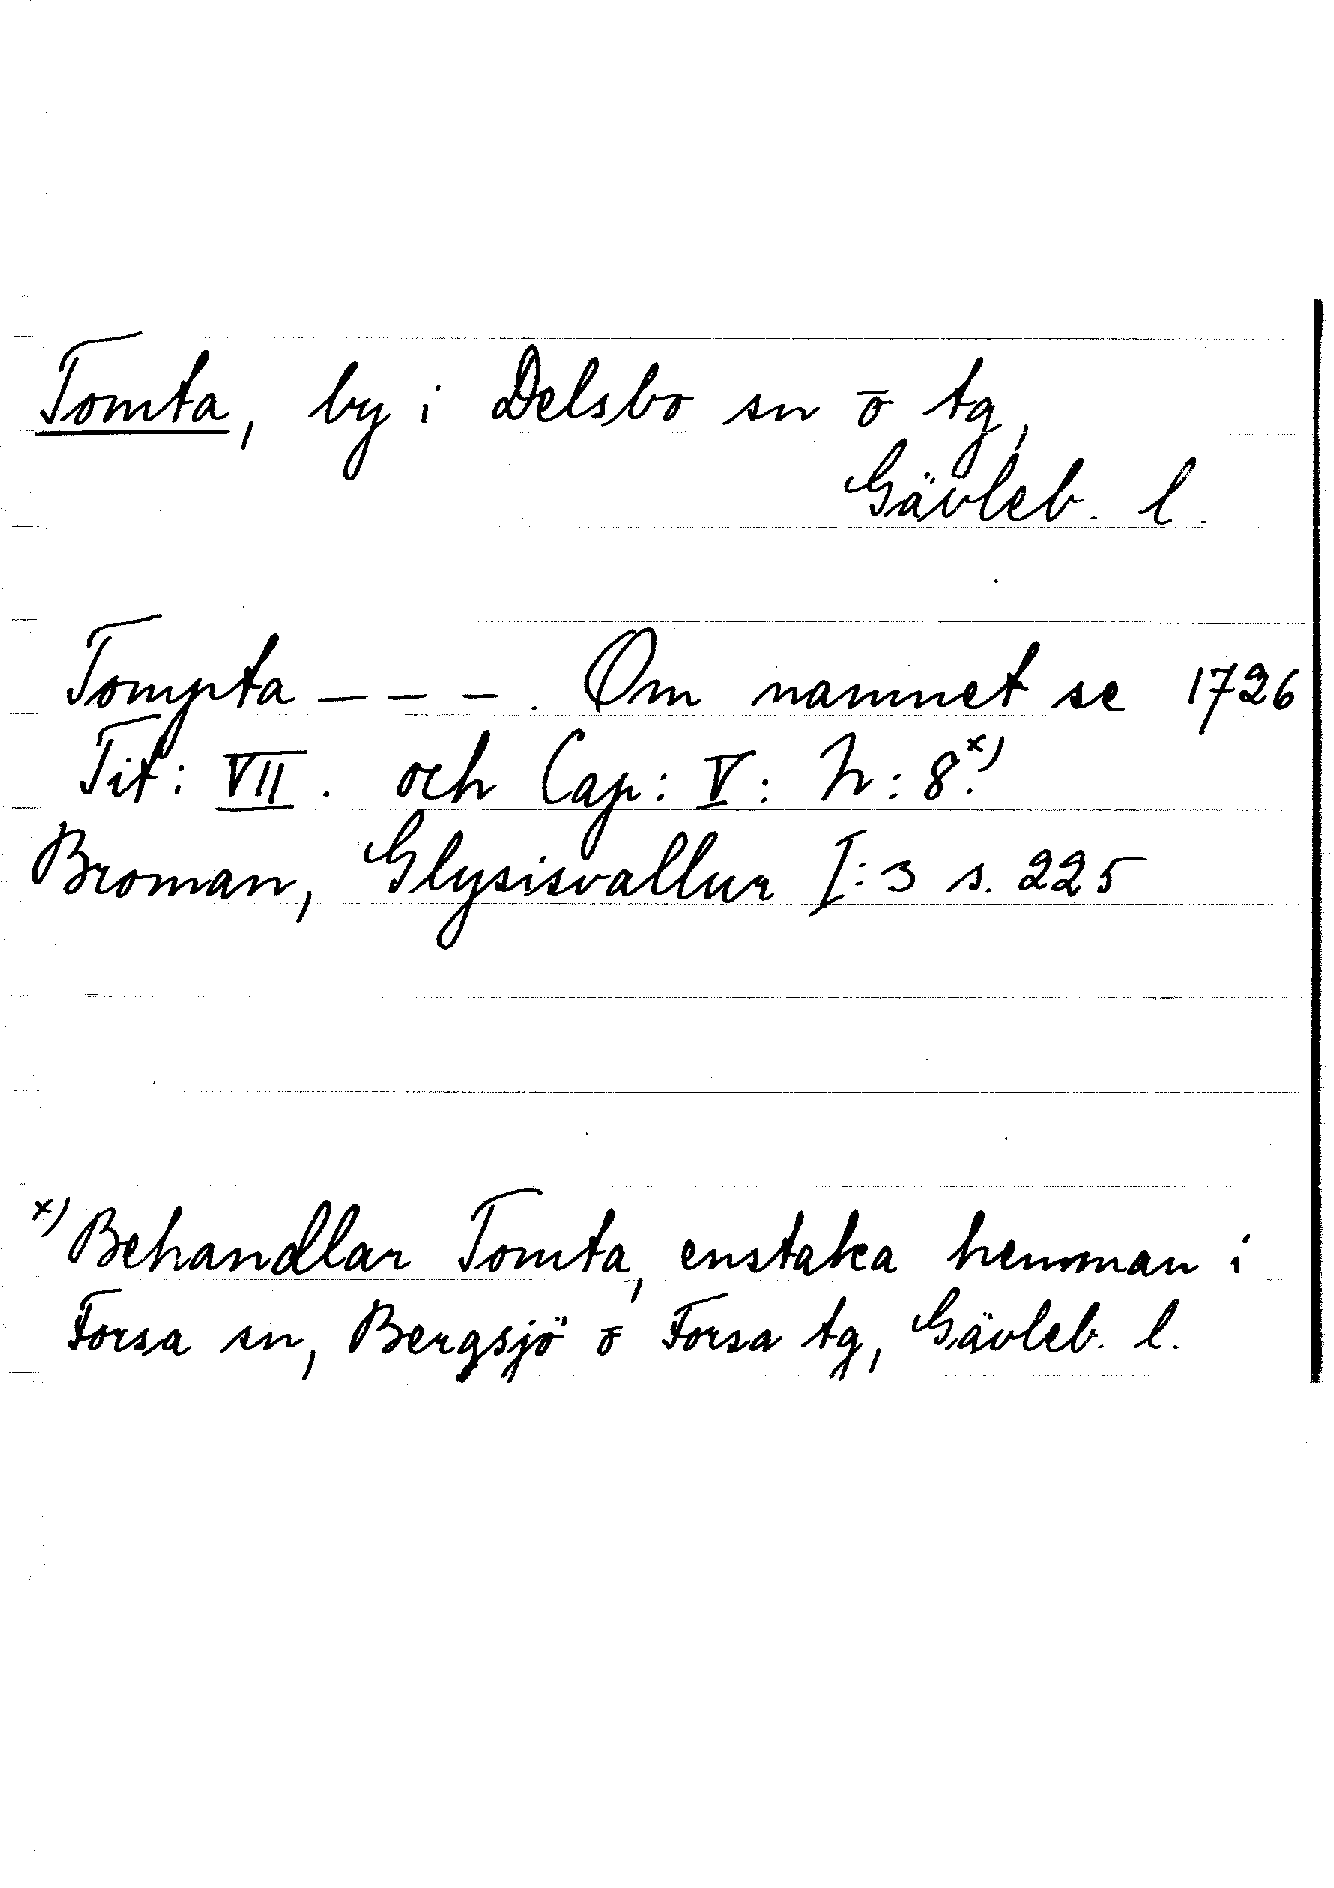 Tomta, by i Delsbo sn o tg,
Gävleb. l.
Tompta – – – . Om namnet se 1726
Tit: VII. och Cap: V: h: 8.x)
Broman, Glysisvallur I:3 s. 225
x) Behandlar Tomta, enstaka hemman i
Forsa sn, Bergsjö o Forsa tg, Gävleb. l.